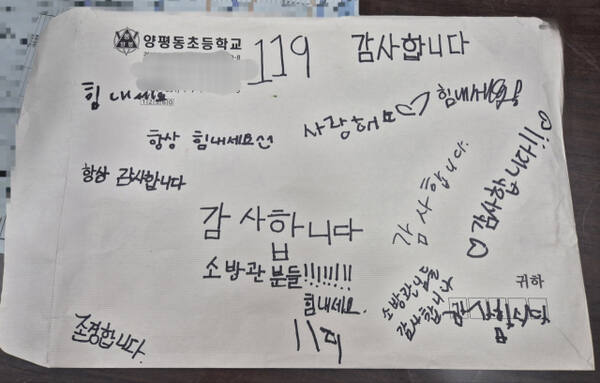 양평동초등학교
119
감사합니다
힘내세요
사랑해요♡
힘내세요
항상 힘내세요
항상 감사합니다
감사합니다
♡감사합니다!!♡
감사합니다
소방관분들!!!!!!!!
힘내세요.
119
소방관님들
감사합니다
귀하
존경합니다.